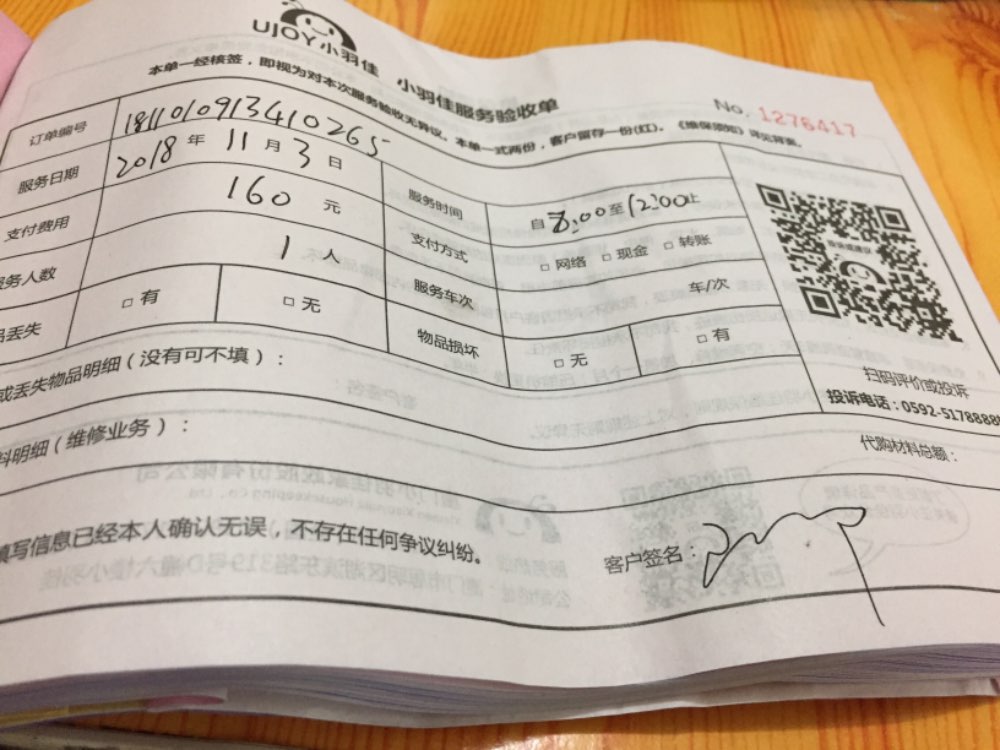 UJOY小羽佳 小羽佳服务验收单
No. 1276417
本单一经核签，即视为对本次服务验收无异议。本单一式两份，客户留存一份(红)。《维保须知》详见背面。
订单编号 181101091341026​5
服务日期 2018 年 11 月 3 日 服务时间 自 8:00 至 12:00 止
支付费用 160 元 支付方式 □ 网络 □ 现金 □ 转账
服务人数 1 人 服务车次 车/次
品丢失 □ 有 □ 无 物品损坏 □ 无 □ 有
扫码评价或投诉
投诉电话：0592-5178888
或丢失物品明细(没有可不填)：
料明细(维修业务)：
代购材料总额：
填写信息已经本人确认无误，不存在任何争议纠纷。
客户签名：